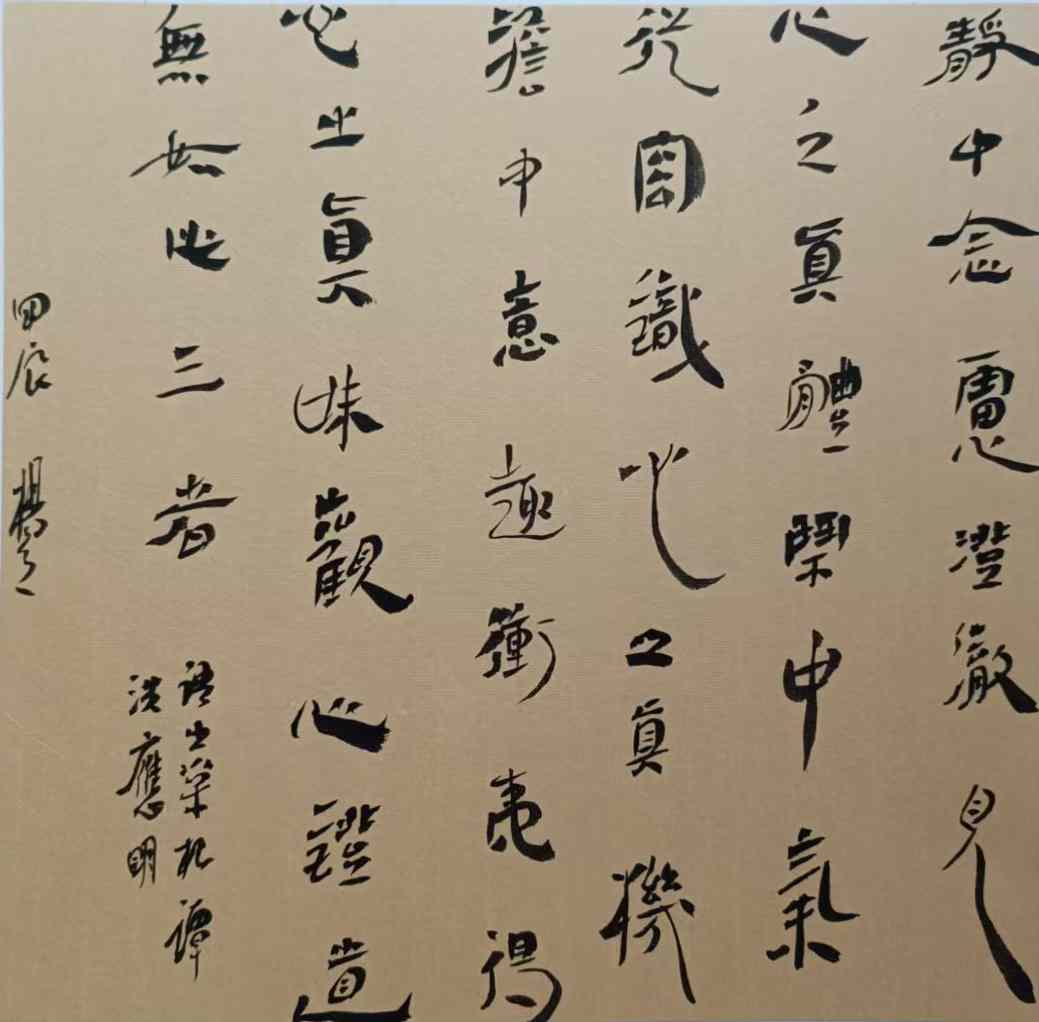 靜中念慮澄徹見
心之眞體閑中氣
從容識心之眞機
澹中意趣衝夷得
心之眞味觀心證道
無如此三者
語出菜根譚
洪應明
甲辰 楊